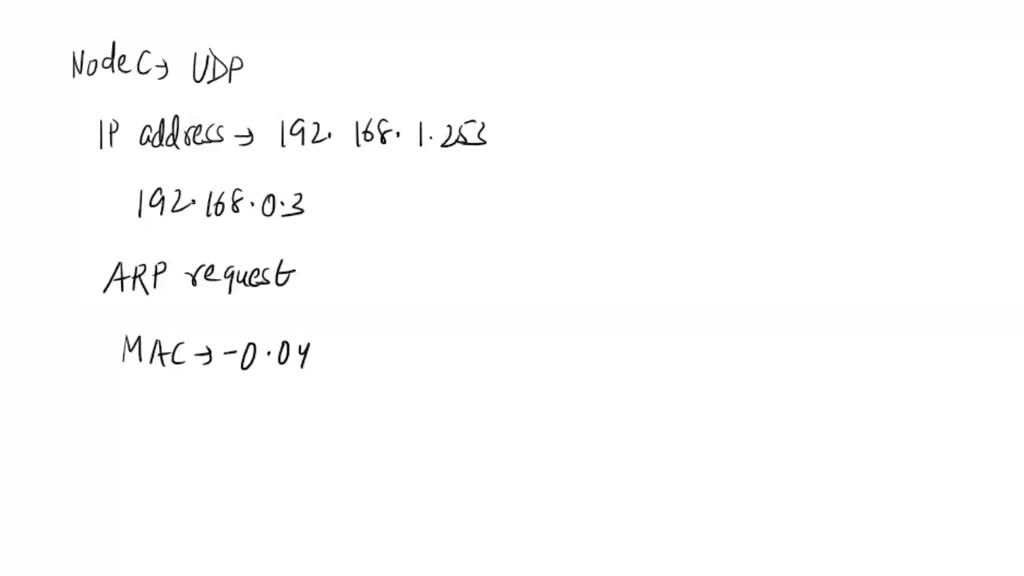 Node C → UDP
IP address → 192. 168. 1. 253
192.168.0.3
ARP request
MAC → -0.04